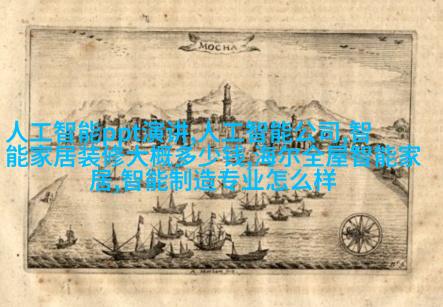 MOCHA
人工智能ppt演讲,人工智能公司,智
能家居装修大概多少钱,海尔全屋智能家
居,智能制造专业怎么样